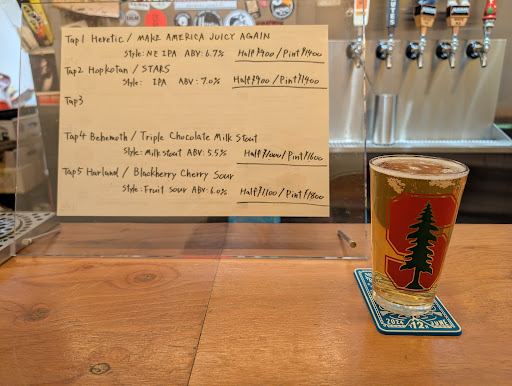 Tap1 Heretic / MAKE AMERICA JUICY AGAIN
Style: NE IPA ABV: 6.7% Half ¥900 / Pint ¥1400
Tap2 Hopkotan / STARS
Style: IPA ABV: 7.0% Half ¥900 / Pint ¥1400
Tap3
Tap4 Behemoth / Triple Chocolate Milk Stout
Style: Milk Stout ABV: 5.5% Half ¥1000 / Pint ¥1600
Tap5 Harland / Blackberry Cherry Sour
Style: Fruit Sour ABV: 6.0% Half ¥1100 / Pint ¥1800
S
12
JUNE